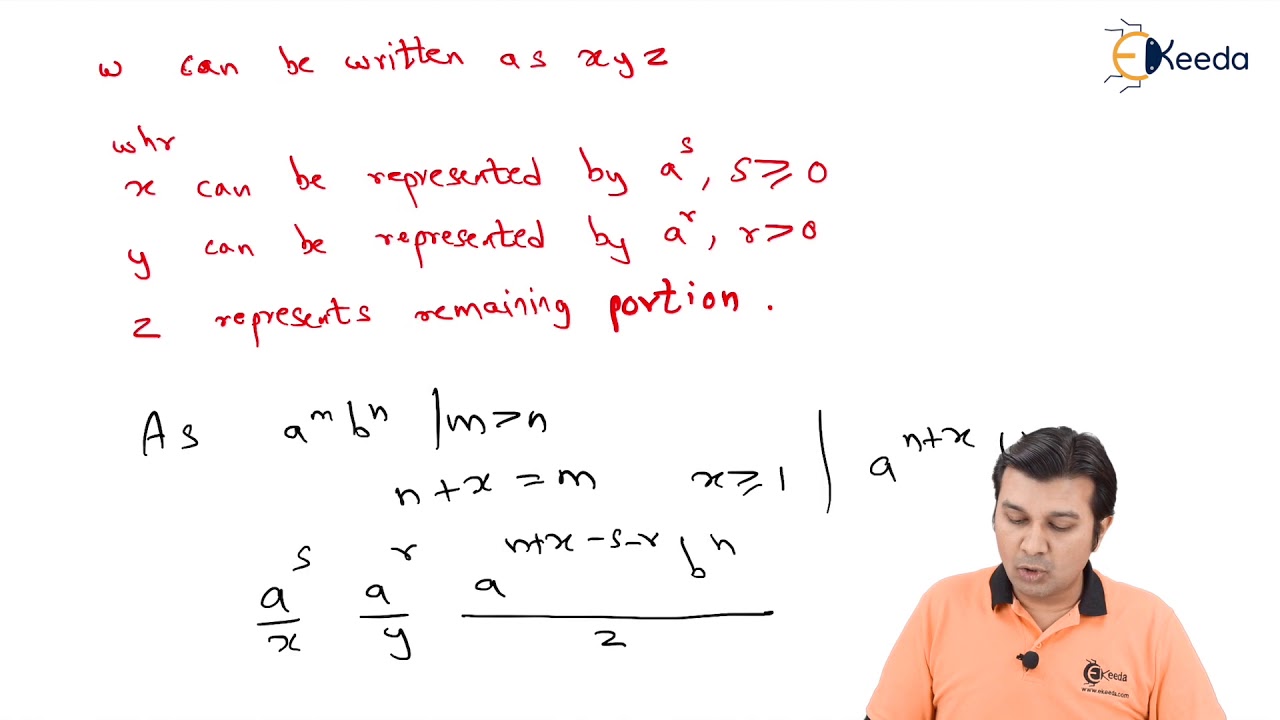 EKeeda
w can be written as xyz
whr
x can be represented by a^s, s ≥ 0
y can be represented by a^r, r > 0
z represents remaining portion.
As a^m b^n | m > n
n + x = m x ≥ 1 | a^{n+x}
a^s a^r a^{n+x-s-r} b^n
x y z
EKeeda
www.ekeeda.com